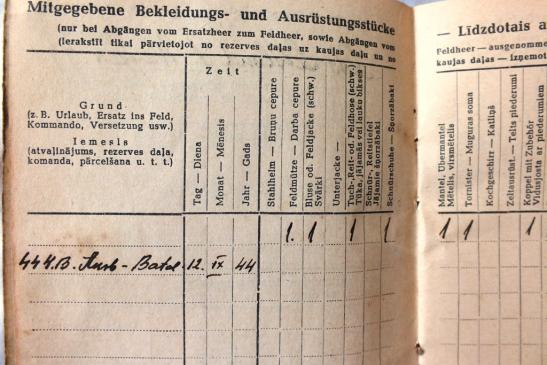 Mitgegebene Bekleidungs- und Ausrüstungsstücke
(nur bei Abgängen vom Ersatzheer zum Feldheer, sowie Abgängen vom
(Ierakstīt tikai pārvietojot no rezerves daļas uz kaujas daļu un no
Grund
(z. B. Urlaub, Ersatz ins Feld,
Kommando, Versetzung usw.)
Iemesls
(atvaļinājums, rezerves daļa,
komanda, pārcelšana u. t. t.)
Zeit
Tag — Diena
Monat — Mēnesis
Jahr — Gads
Stahlhelm — Bruņu cepure
Feldmütze — Darba cepure
Bluse od. Feldjacke (schw.)
Svārki
Unterjacke —
Tuch-, Reit- od. Feldhose (schw.)
Tūka, jājamās vai lauku bikses
Schnür-, Reitstiefel
Jājamie šporzābaki
Schnürschuhe — Šporzābaki
1. 1 1 1
12. IX 44
— Līdzdotais a
Feldheer — ausgenomme
kaujas daļas — izņemot
Mantel, Übermantel
Mētelis, virsmētelis
Tornister — Muguras soma
Kochgeschirr — Katliņš
Zeltausrüst. — Telts piederumi
Koppel mit Zubehör
Vidusjosta ar piederumiem
1 1 1